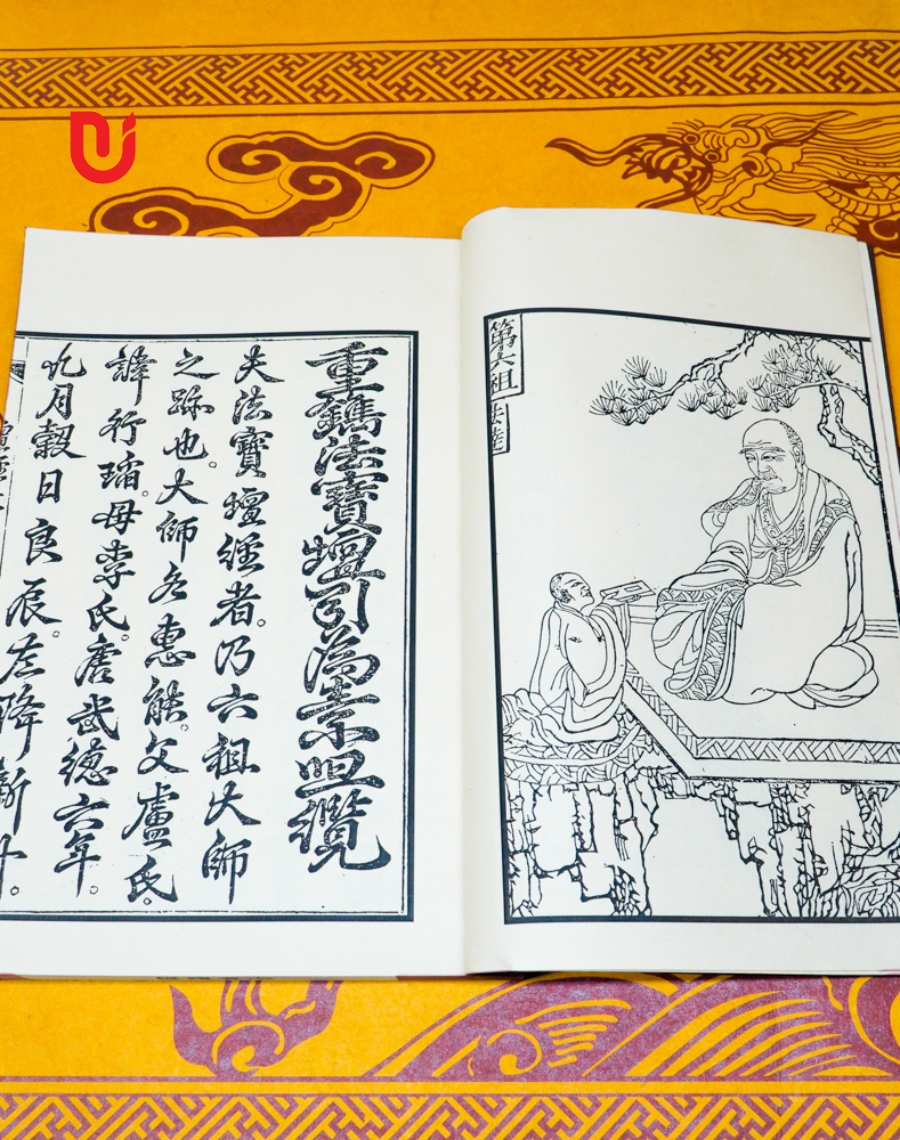 第六祖
法達
重鐫法寶壇引為
夫法寶壇經者。乃六祖大師
之跡也。大師名惠能。父盧氏。
諱行瑫。母李氏。唐武德六年。
九月穀日良辰。左降新州。